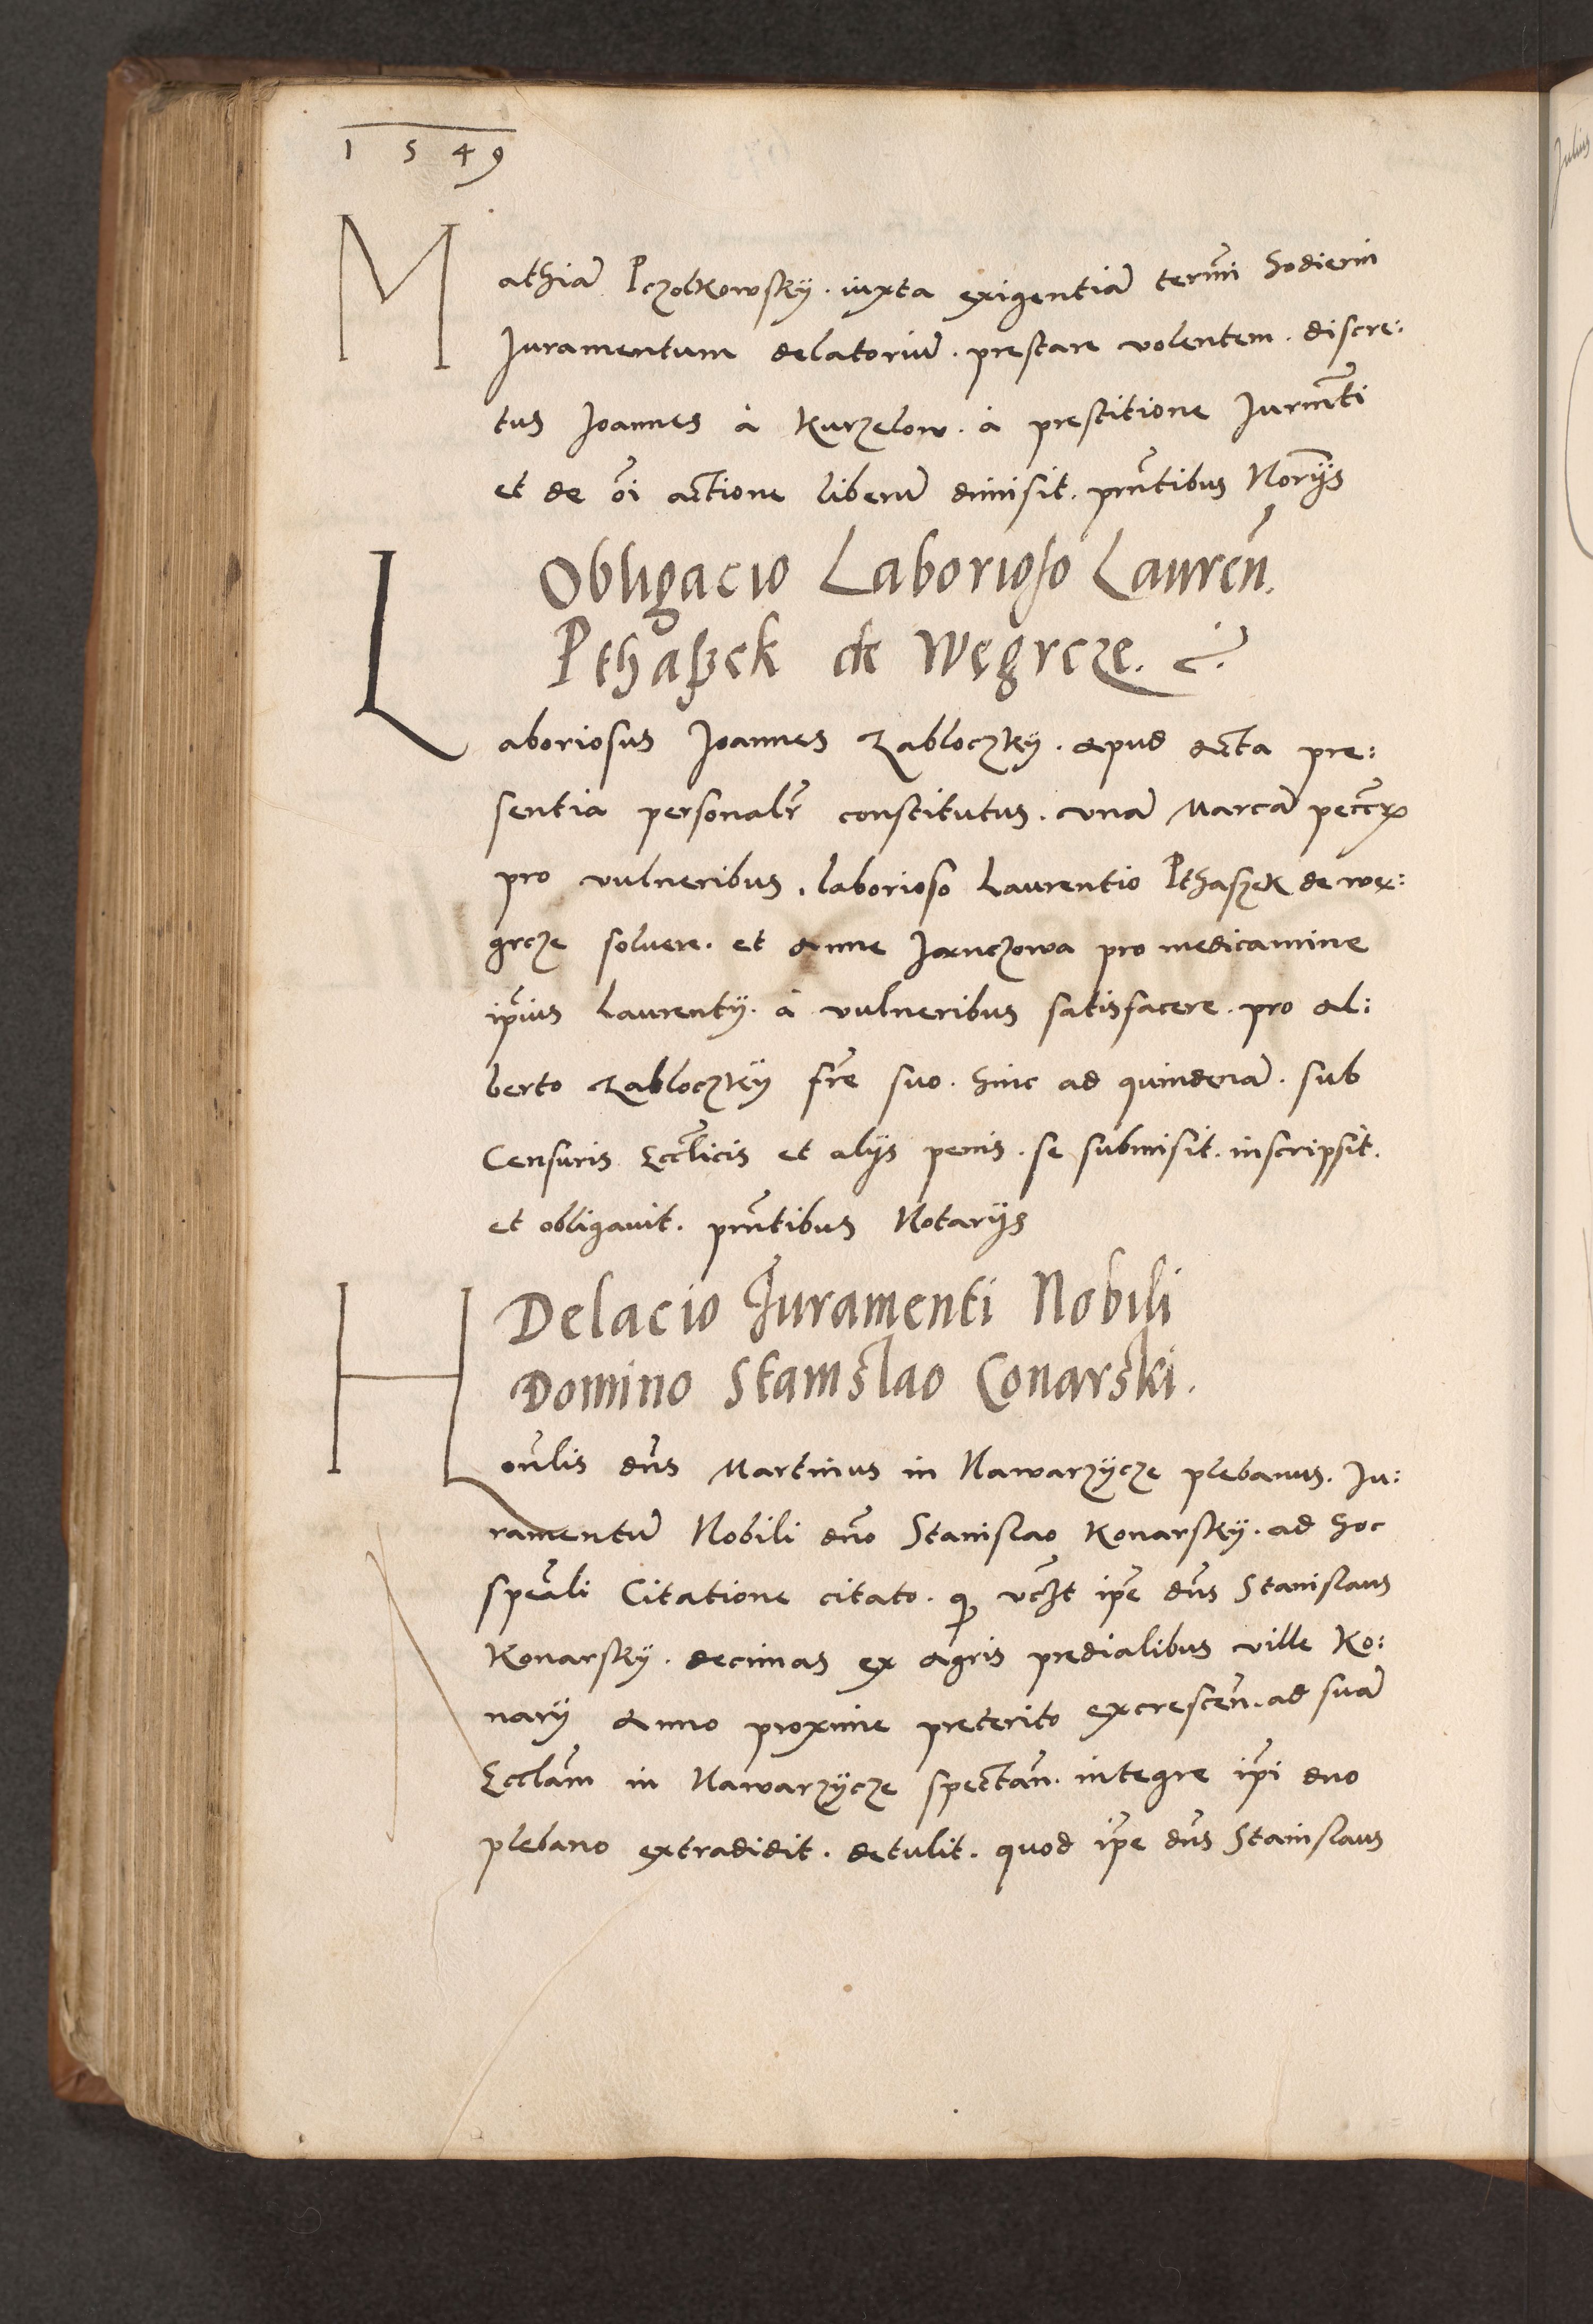 1549
Mathiā Pczolkowskÿ. iuxta exigentiā termī hodierni
Juramentum delatoriū. prestare volentem. discre:
tus Joannes à Kurzelow. à prestitione Jurmēti
et de oī actione liberū dimisit. pn̄tibus Nōrijs
Obligacio Laborioso Lauren̄.
Pthaßek de Węgrcze. &.
Laboriosus Joannes Zabloczkÿ. apud acta pre:
sentia personalr̄ constitutus. vnā Marcā pecc̄ꝝ
pro vulneribus. laborioso Laurentio Pthaszek de wę:
grcze soluere. et Anne Janczowa pro medicamine
ip̄ius Laurentÿ. à vulneribus satisfacere. pro Al:
berto Zabloczkÿ fr̄e suo. hinc ad quindenā. sub
Censuris Eccl̄icis et alijs penis. se submisit. inscripsit.
et obligauit. pn̄tibus Notarijs
Delacio Juramenti Nobili
Domino Stanislao Conarski.
Honīlis dn̄s Martinus in Nawarzÿcze plebanus. Ju:
ramentū Nobili dn̄o Stanislao Konarskÿ. ad hoc
speāli Citatione citato. ꝙ vcꝫt ip̄e dn̄s Stanislaus
Konarskÿ. decimas ex agris predialibus ville Ko:
narÿ Anno proxime preterito excrescen̄. ad suā
Eccl̄am in Nawarzÿcze spectan̄. integre ip̄i dno
plebano extradidit. detulit. quod ip̄e dn̄s Stanislaus